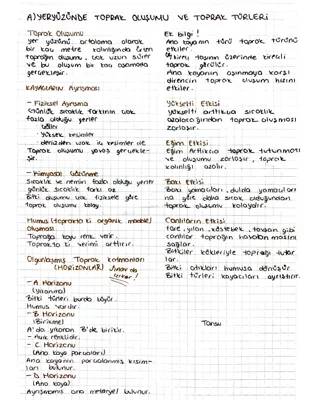 A) YERYÜZÜNDE TOPRAK OLUŞUMU VE TOPRAK TÜRLERİ
Toprak Oluşumu
yer yüzünü ortalama olarak
bir kaç metre kalınlığında örten
toprağın oluşumu çok uzun sürer
ve bu oluşum bir kaç aşamada
gerçekleşir.
KAYAÇLARIN Ayrışması
- Fiziksel Ayrışma
Günlük sıcaklık farkının çok
fazla olduğu yerler
Çöller
Yüksek kesimler
denizden uzak iç kesimler de
Toprak oluşumu yavaş gerçekle-
şir.
- Kimyasal Çözünme
Sıcaklık ve nemin fazla olduğu yerler
günlük sıcaklık farkı az
Bitki oluşumu çok fiziksele göre
toprak oluşumu kolay
Humus (toprakta ki organik madde)
Oluşumu
Toprağa koyu renk verir.
Toprakta ki verimi arttırır.
Olgunlaşmış Toprak katmanları
(HORİZONLAR)
Sınavda
çıkar!
- A Horizonu
(yıkanma)
Bitki türleri burda büyür.
Humus vardır.
- B Horizonu
(Birikme)
A'da yıkanan B'de birikir.
- Açık renklidir.
- C Horizonu
(Ana kaya parçaları)
Ana kayanın parçalanmış kısım-
ları bulunur.
- D Horizonu
(Ana kaya)
Ayrışmamış ana materyel bulunur.
Ek bilgi!
Ana kayanın türü toprak türünü
etkiler.
taşının üzerinde kireçli
toprak görülür.
Ana kayanın aşınmaya karşı
direncin toprak oluşum hızını
etkiler.
Yükselti Etkisi
yükselti arttıkça sıcaklık
azalacağından toprak oluşması
zorlaşır.
Eğim Etkisi
Eğim Arttıkça toprak tutunması
ve oluşumu zorlaşır, toprak
kalınlığı azalır.
Bakı Etkisi
Bakı yamaçları, dulda yamaçları
na göre daha sıcak olduğundan
toprak oluşumu kolaydır.
Canlıların Etkisi
fare, yılan, köstebek, tavşan gibi
canlılar toprağın havalanmasını
sağlar.
Bitkiler kökleriyle toprağı tutar
lar.
Bitki atıkları humusa dönüşür
Bitki türleri kayaçları ayrıştırır.